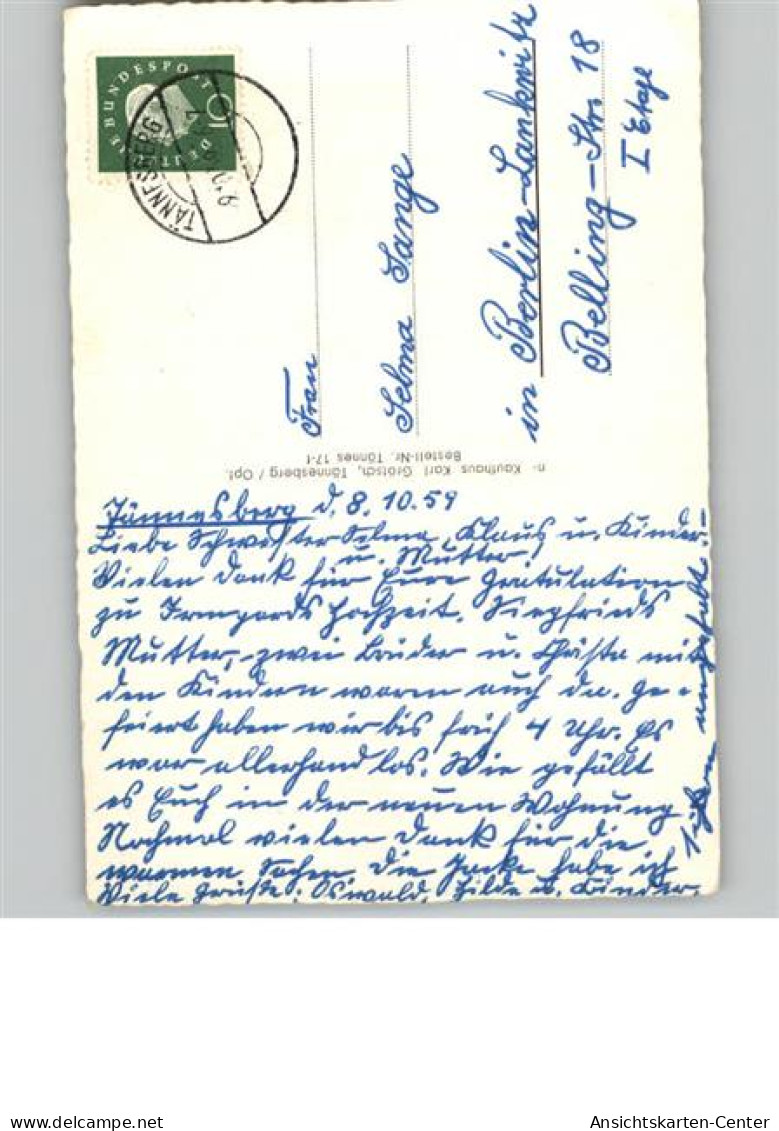 DEUTSCHE BUNDESPOST
10
TÄNNESBERG
Frau
Selma Lange
in Berlin-Lankwitz
Belling-Str. 18
I Etage
n- Kaufhaus Karl Grötsch, Tännesberg / Opf.
Bestell-Nr. Tännes 17-f
Tännesberg d. 8.10.59
Liebe Schwester Selma, Klaus u. Kinder
u. Mutter!
Vielen Dank für Eure Gratulation
zu Irmgards Hochzeit. Siegfrieds
Mutter, zwei Brüder u. Gäste mit
den Kindern waren auch da. Ge-
feiert haben wir bis früh 4 Uhr. Es
war allerhand los. Wie gefällt
es Euch in der neuen Wohnung
Nochmal vielen Dank für die
warmen Sachen. Die Jacke habe ich
schon umgefärbt
Viele Grüße: Oswald, Hilde u. Kinder.
Ansichtskarten-Center